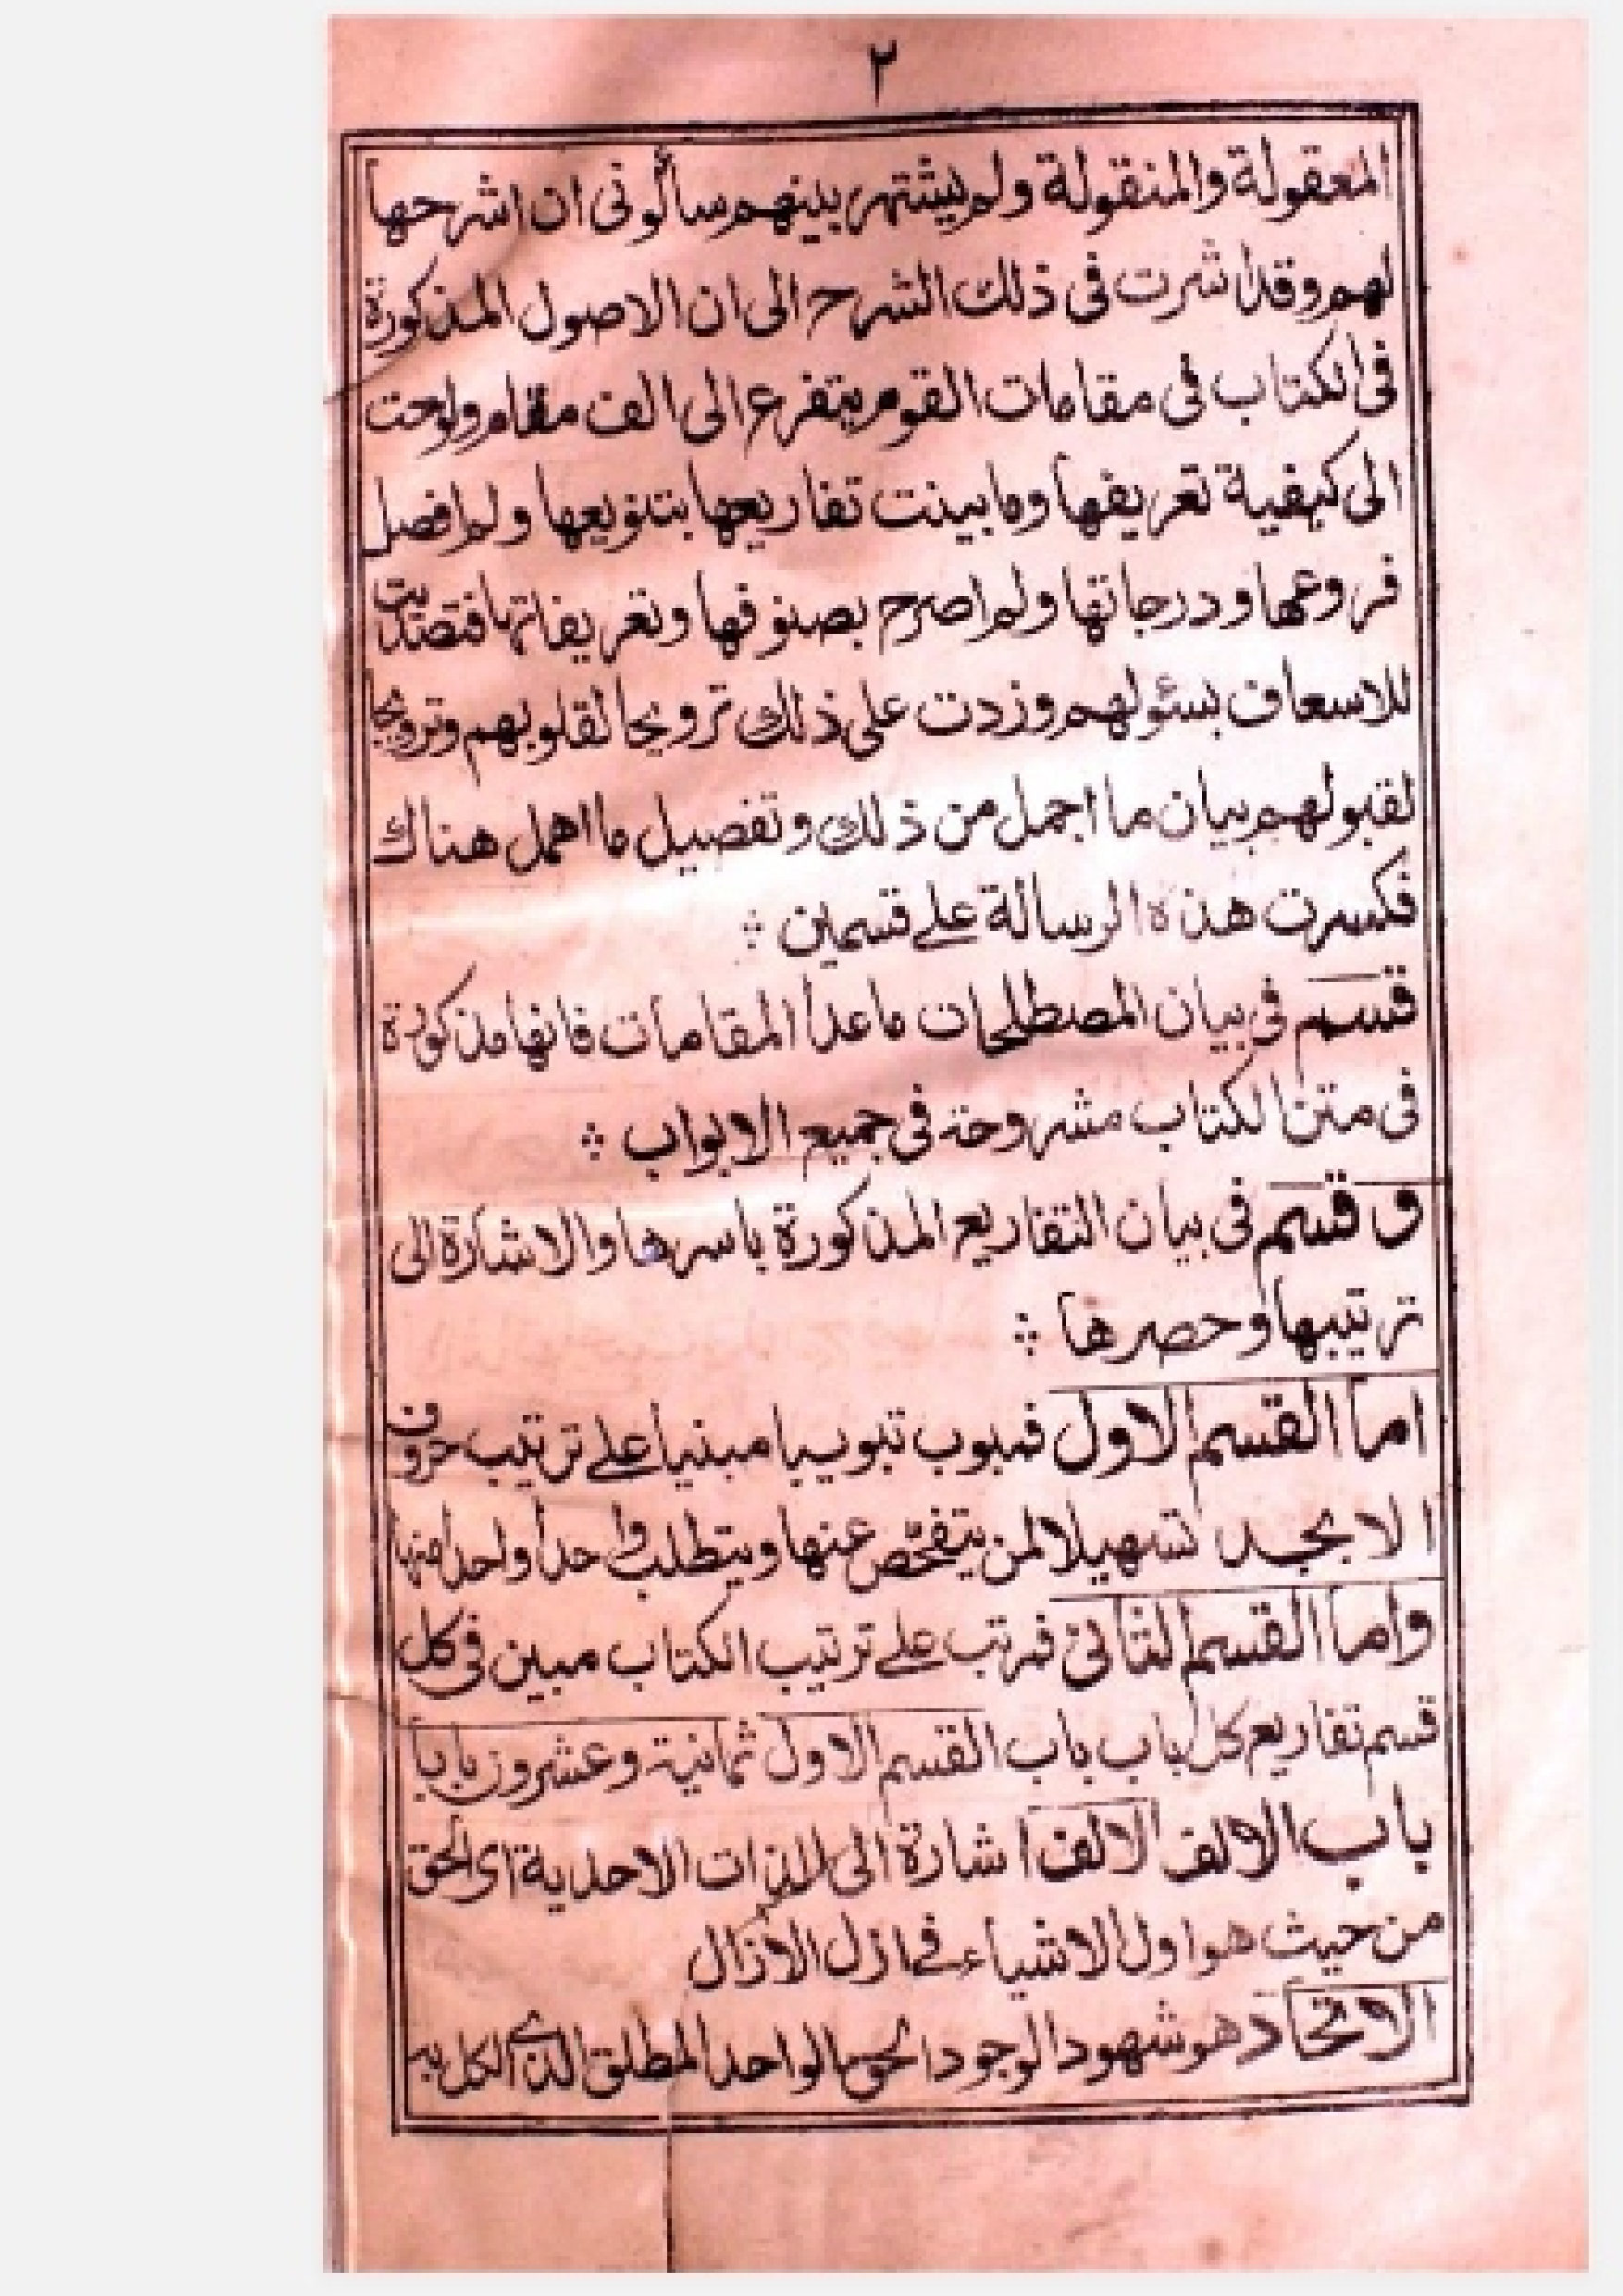 ٢
المعقولة والمنقولة ولم يشتهر بينهم سألونى ان اشرحها
لهم وقد اشرت فى ذلك الشرح الى ان الاصول المذكورة
فى الكتاب فى مقامات القوم يتفرع الى الف مقام ولوحت
الى كيفية تفريعها وما بينت تفاريعها بتنويعها ولم افصل
فروعها ودرجاتها ولم اصرح بصنوفها وتعريفاتها فتصديت
للاسعاف بسئولهم وزدت على ذلك ترويحا لقلوبهم وترويجا
لقبولهم بيان ما اجمل من ذلك وتفصيل ما اهمل هناك
فكسرت هذه الرسالة على قسمين
قسم فى بيان المصطلحات ما عدا المقامات فانها مذكورة
فى متن الكتاب مشروحة فى جميع الابواب
وقسم فى بيان التفاريع المذكورة باسرها والاشارة الى
ترتيبها وحصرها
اما القسم الاول فمبوب تبويبا مبنيا على ترتيب حروف
الابجد تسهيلا لمن يتفحص عنها ويتطلب واحدا واحدا منها
واما القسم الثانى فمرتب على ترتيب الكتاب مبين فى كل
قسم تفاريع كل باب باب القسم الاول ثمانية وعشرون بابا
باب الالف الالف اشارة الى الذات الاحدية اى الحق
من حيث هو اول الاشياء فى ازل الازال
الاتحاد هو شهود الوجود الحق الواحد المطلق الذى الكل به